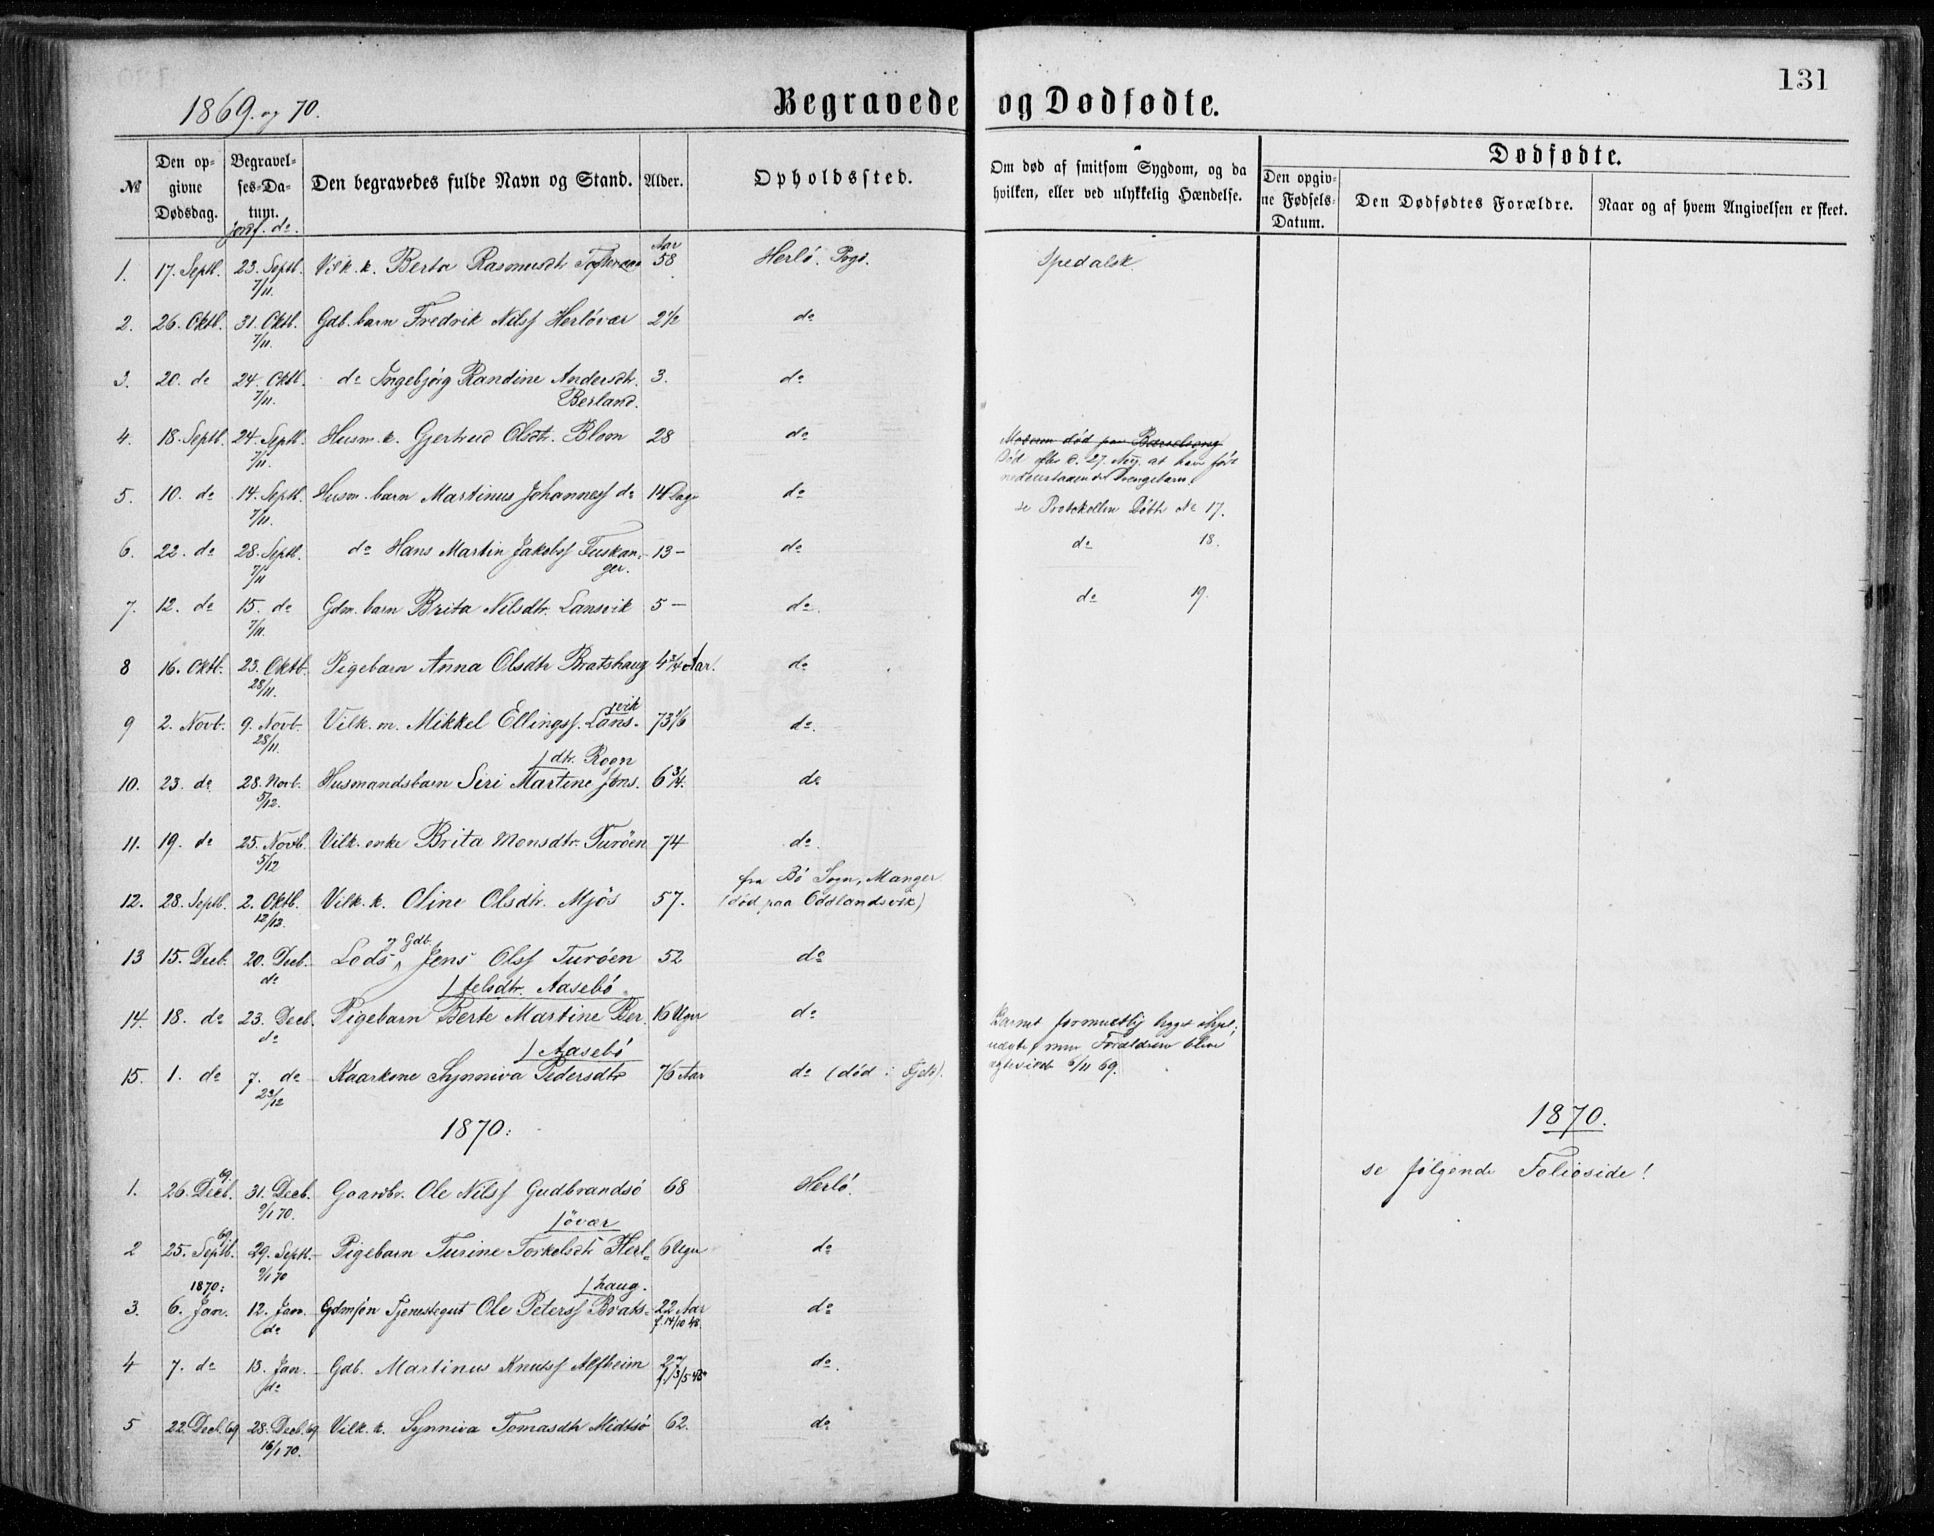 131
1869. og 70.
Begravede og Dødfødte.
№ Den opgivne Dødsdag. Begravelses-Datum. Jordf. do. Den begravedes fulde Navn og Stand. Alder. Opholdssted. Om død af smitsom Sygdom, og da hvilken, eller ved ulykkelig Hændelse. Dødfødte. Den opgivne Fødsels-Datum. Den Dødfødtes Forældre. Naar og af hvem Angivelsen er skeet.
1. 17. Septb. 23. Septb. 7/11. Vilk. k. Berta Rasmusdtr Aar 58 Herlö. Sogn. Spedalsk.
2. 26. Oktb. 31. Oktb. 7/11. Gdb. barn Fredrik Nilss Herlövær 2½ do
3. 20. do 24. Oktb. 7/11. do Ingebjörg Randine Andersdtr. Berland. 3. do
4. 18. Septb. 24. Septb. 7/11. Husm. k. Gjertrud Olsdtr. Blom 28 do Moderen død paa Barselseng
Død efter d. 27. Aug. at have født nedenstaaende Drengebarn.
5. 10. do 14. Septb. 7/11. Husm. barn Martinus Johanness do 14 Dage do se Protokollen Döbte No 17.
6. 22. do 28. Septb. 7/11 do Hans Martin Jakobss Tuskanger. 13 – do do 18.
7. 12. do 15. do 7/11. Gdm. barn Brita Nilsdtr. Lansvik 5 – do. do 19.
8 16. Oktb. 23. Oktb. 28/11. Pigebarn Anna Olsdtr Bratshaug 4¾ Aar. do
9 2. Novb. 9. Novb. 28/11. Vilk. m. Mikkel Ellingss. Lansvik 73 1/6 do.
10. 23. do 28. Novb. 5/12. Husmandsbarn Siri Martine Jons.dtr. Rogn 6¾. do
11. 19. do 25. Novb. 5/12 Vilk. enke Brita Monsdtr. Turöen 74 do.
12. 28. Septb. 2. Oktb. 12/12. Vilk. k. Oline Olsdtr. Mjös 57. fra Bö Sogn, Manger (död paa Oddslandsvik)
13 15. Decb. 20. Decb. do Lods og Gdb. Jens Olss Turöen 52 do
14. 18. do 23. Decb. do Pigebarn Berte Martine Ber.telsdtr. Aasebö 16 Uger do Barnet formentlig lagt ihjel; men Forældrene bleve 6/11 69.
15. 1. do 7. do 23/12 Kaarkone Synniva Pedersdtr Aasebö 76 Aar do (död i Fjeld).
1870: 1870.
se følgende Folioside!
1. 26. Decb. 69 31. Decb. 9/1 70. Gaardbr. Ole Nilss Gudbrandsö 68 Herlö.
2 25. Septb. 69 29. Septb. 9/1 70 Pigebarn Turine Torkelsdtr Herlövær 6 Uger do
3. 1870: 6. Jan. 12. Jan. do Gdmsön Tjenestegut Ole Peterss Bratshaug. 22 Aar f. 14/10 48 do
4 7. do 13. Jan. do Gdb. Martinus Knutss Alfheim 27 do.
5 22. Decb. 69 28. Decb. 69 16/1 70. Vilk. k. Synniva Tomasdtr Midtsö 62. do